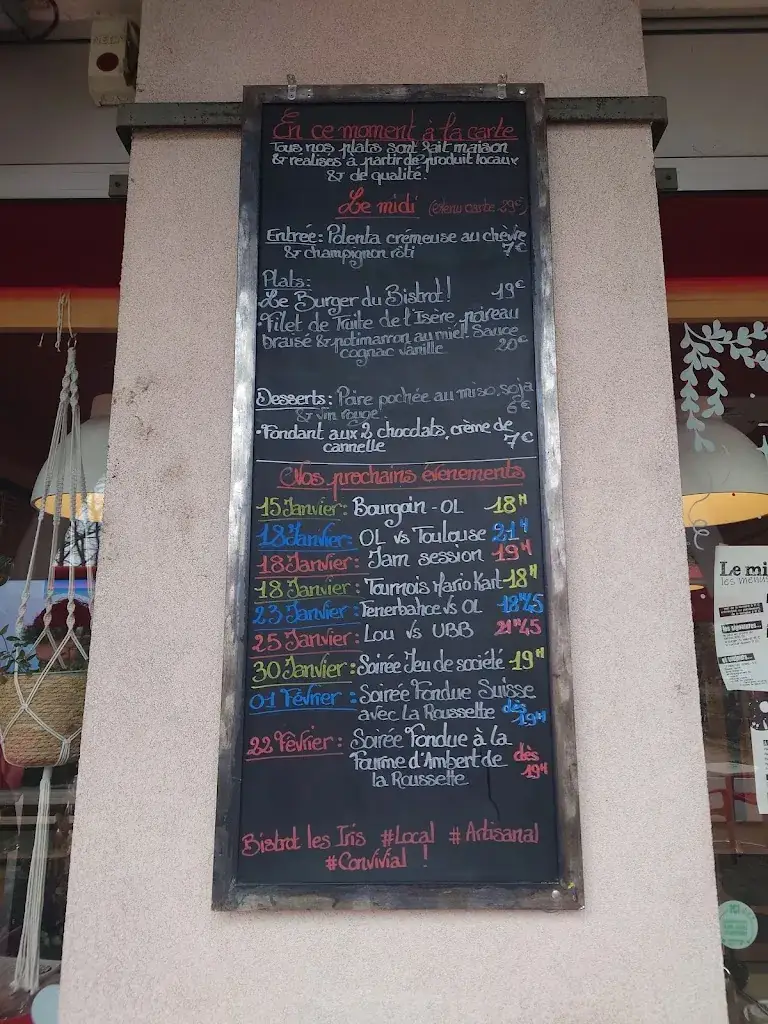 En ce moment à la carte
Tous nos plats sont fait maison
& réalisés à partir de produit locaux
& de qualité.
Le midi (Menu carte 29€)
Entrée: Polenta crémeuse au chèvre
& champignon rôti 7€
Plats:
Le Burger du Bistrot! 19€
•Filet de Truite de l'Isère, poireau
braisé & potimarron au miel! Sauce
cognac vanille 20€
Desserts: Poire pochée au miso, soja
& vin rouge. 6€
•Fondant aux 2 chocolats, crème de
cannelle 7€
Nos prochains évenements
15 Janvier: Bourgoin - OL 18H
18 Janvier: OL vs Toulouse 21H
18 Janvier: Jam session 19H
18 Janvier: Tournois Mario Kart 18H
23 Janvier: Fenerbahce vs OL 18H45
25 Janvier: Lou vs UBB 21H45
30 Janvier: Soirée Jeu de société 19H
01 Février: Soirée Fondue Suisse
avec La Roussette dès 19H
22 Février: Soirée Fondue à la
Fourme d'Ambert de
la Roussette dès 19H
Bistrot les Iris #Local #Artisanal
#Convivial !
Le mi
les menus